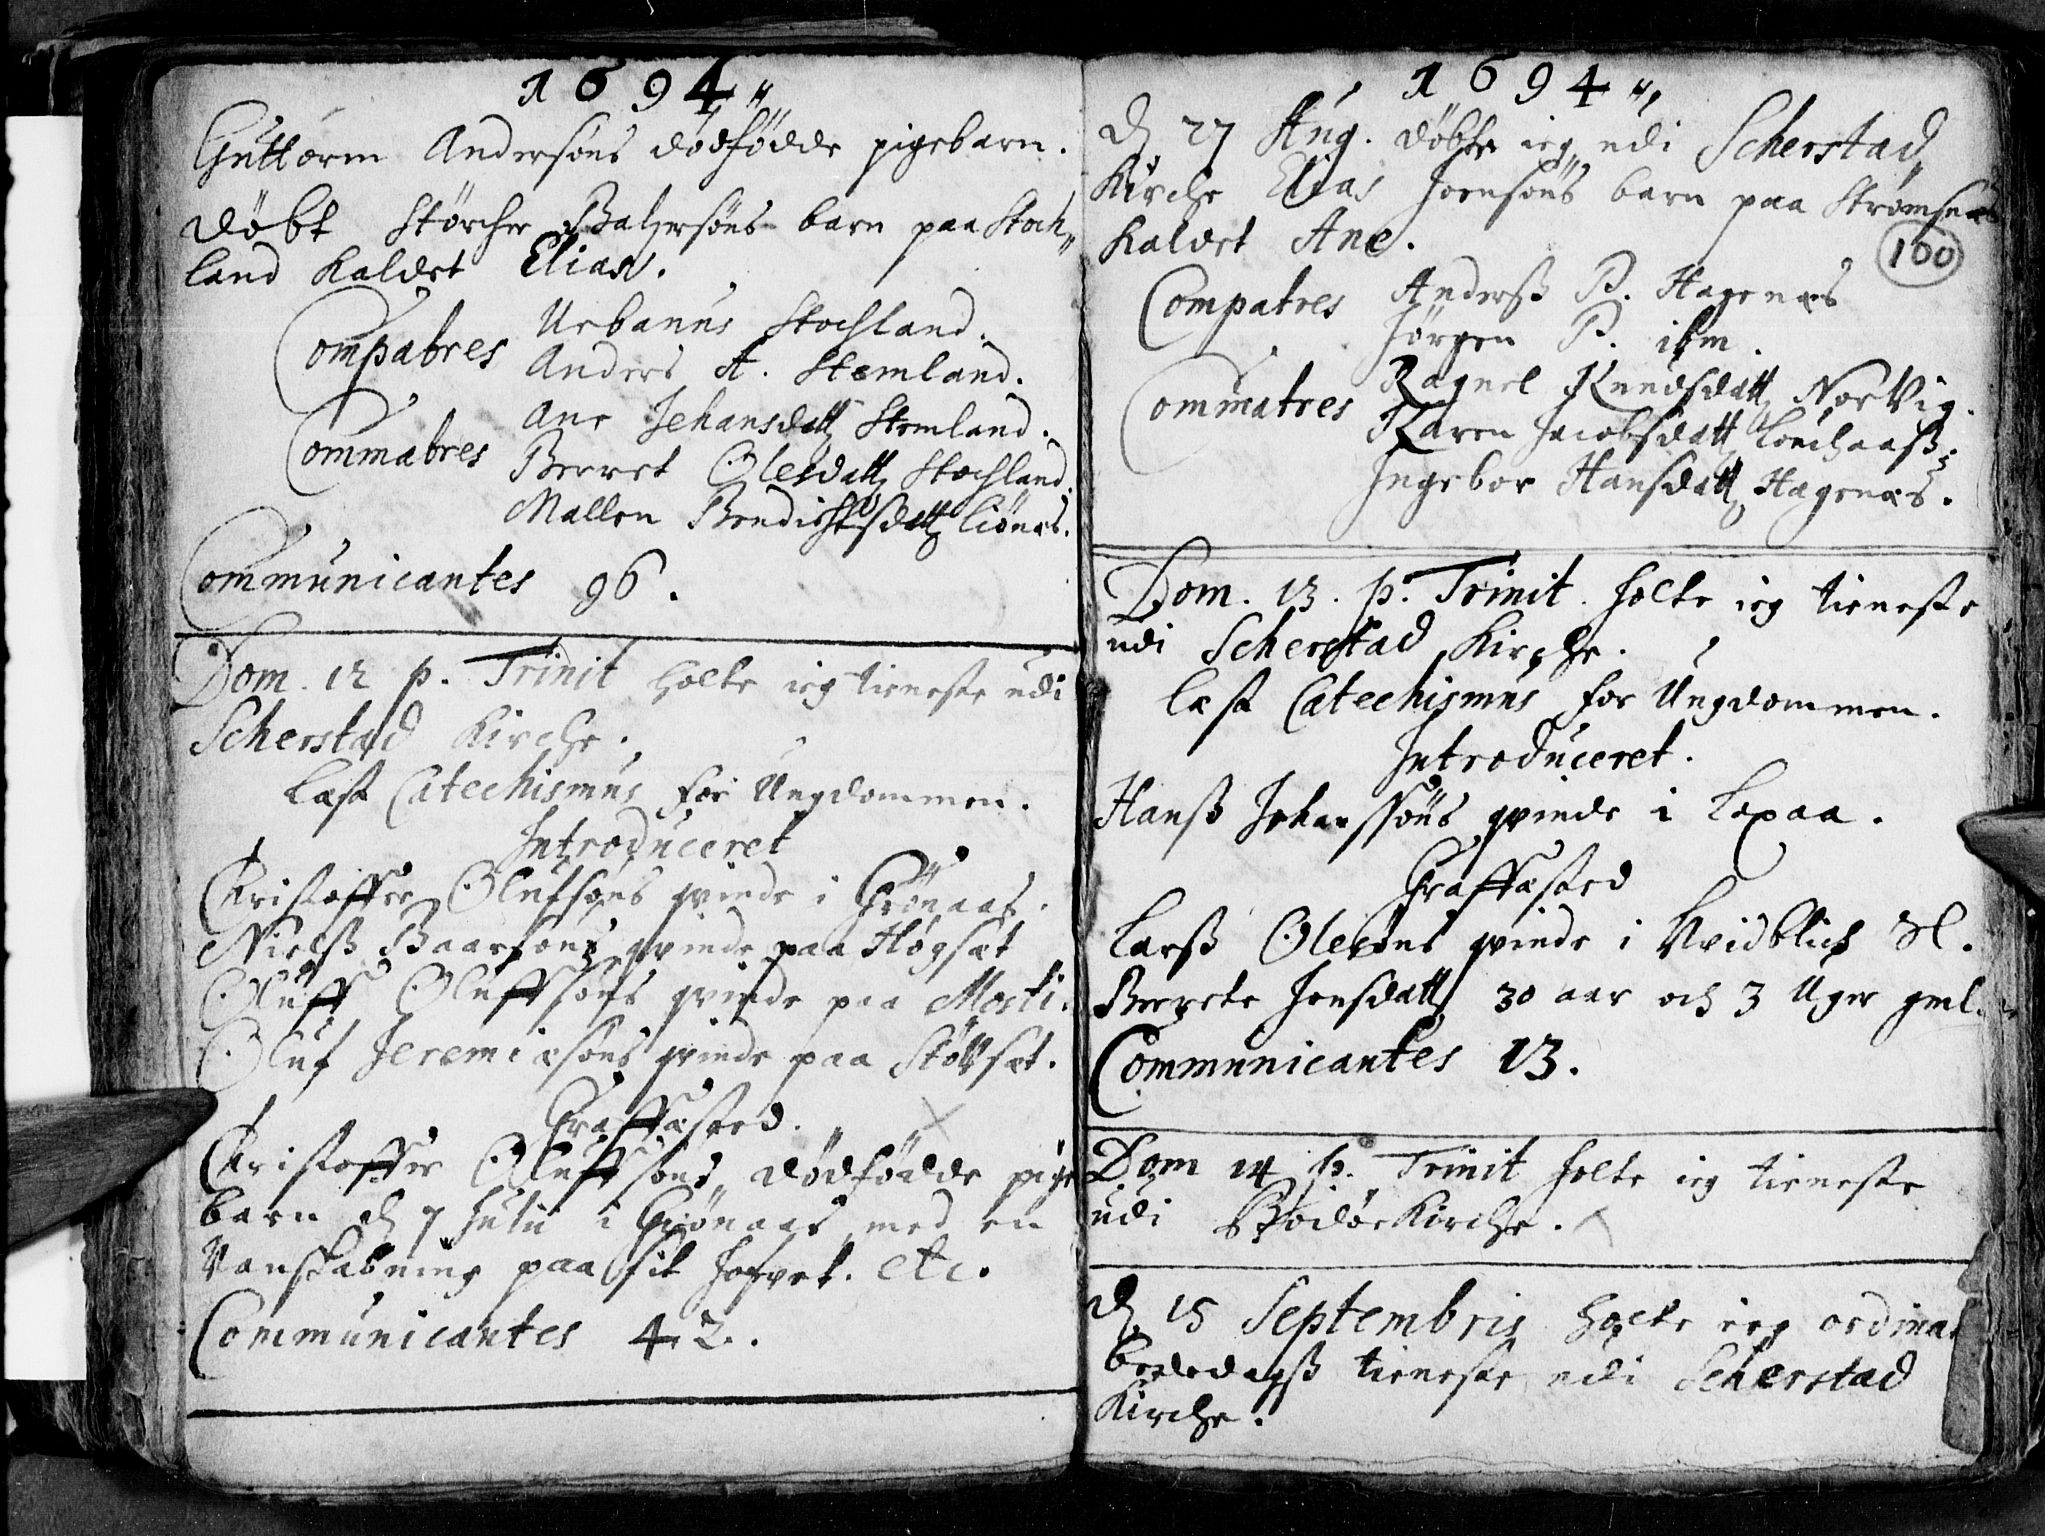 1694
Guttorm Andersøns dødfødde pigebarn.
døbt Størcher Balzersøns barn paa Stoch
land kaldet Elias.
Compatres Urbanus Stochland.
Anders A. Stemland.
Commatres Ane Jehansdatt Stemland.
Berret Olesdatt Stochland.
Mallen Bendichtsdatt Liønes.
Communicantes 96.
Dom. 12 p. Trinit holte ieg tieneste udi
Scherstad Kirche.
Læst Catechismus for Ungdommen.
Introduceret
Christoffer Olufsøns qvinde i Grønaas.
Nielß Baarsøns qvinde paa Høgsæt
Oluff Oluffsøns qvinde paa Morti.
Oluf Jeremiæsøns qvinde paa Støttsæt.
Graffæsted.
Christoffer Oluffsøns dødfødde pige
barn d. 7 hujus i Grønaas med en
Vanskabning paa sit Hofvet. etc.
Communicantes 42.
1694
d. 27 Aug. døbte ieg udi Scherstad
Kirche Elias Joensøns barn paa Strømsnæs
kaldet Ane.
100
Compatres Anderß P. Hagenæs
Jørgen P. ibm.
Commatres Ragnel Knudsdatt Norvig.
Karen Jacobsdatt
Ingebor Hansdatt Hagenæs.
Dom. 13. p. Trinit. holte ieg tieneste
udi Scherstad Kirche.
Læst Catechismus for Ungdommen.
Introduceret.
Hanß Johanssøns qvinde i Lexaa.
Graffæsted
Larß Olesøns qvinde i Hvidblich Sl.
Berrete Jensdatt 30 aar och 3 Uger gml.
Communicantes 13.
Dom 14 p. Trinit holte ieg tieneste
udi Bodøe Kirche.
d. 15 Septembris holte ieg ordinar
bededagß tieneste udi Scherstad
Kirche.